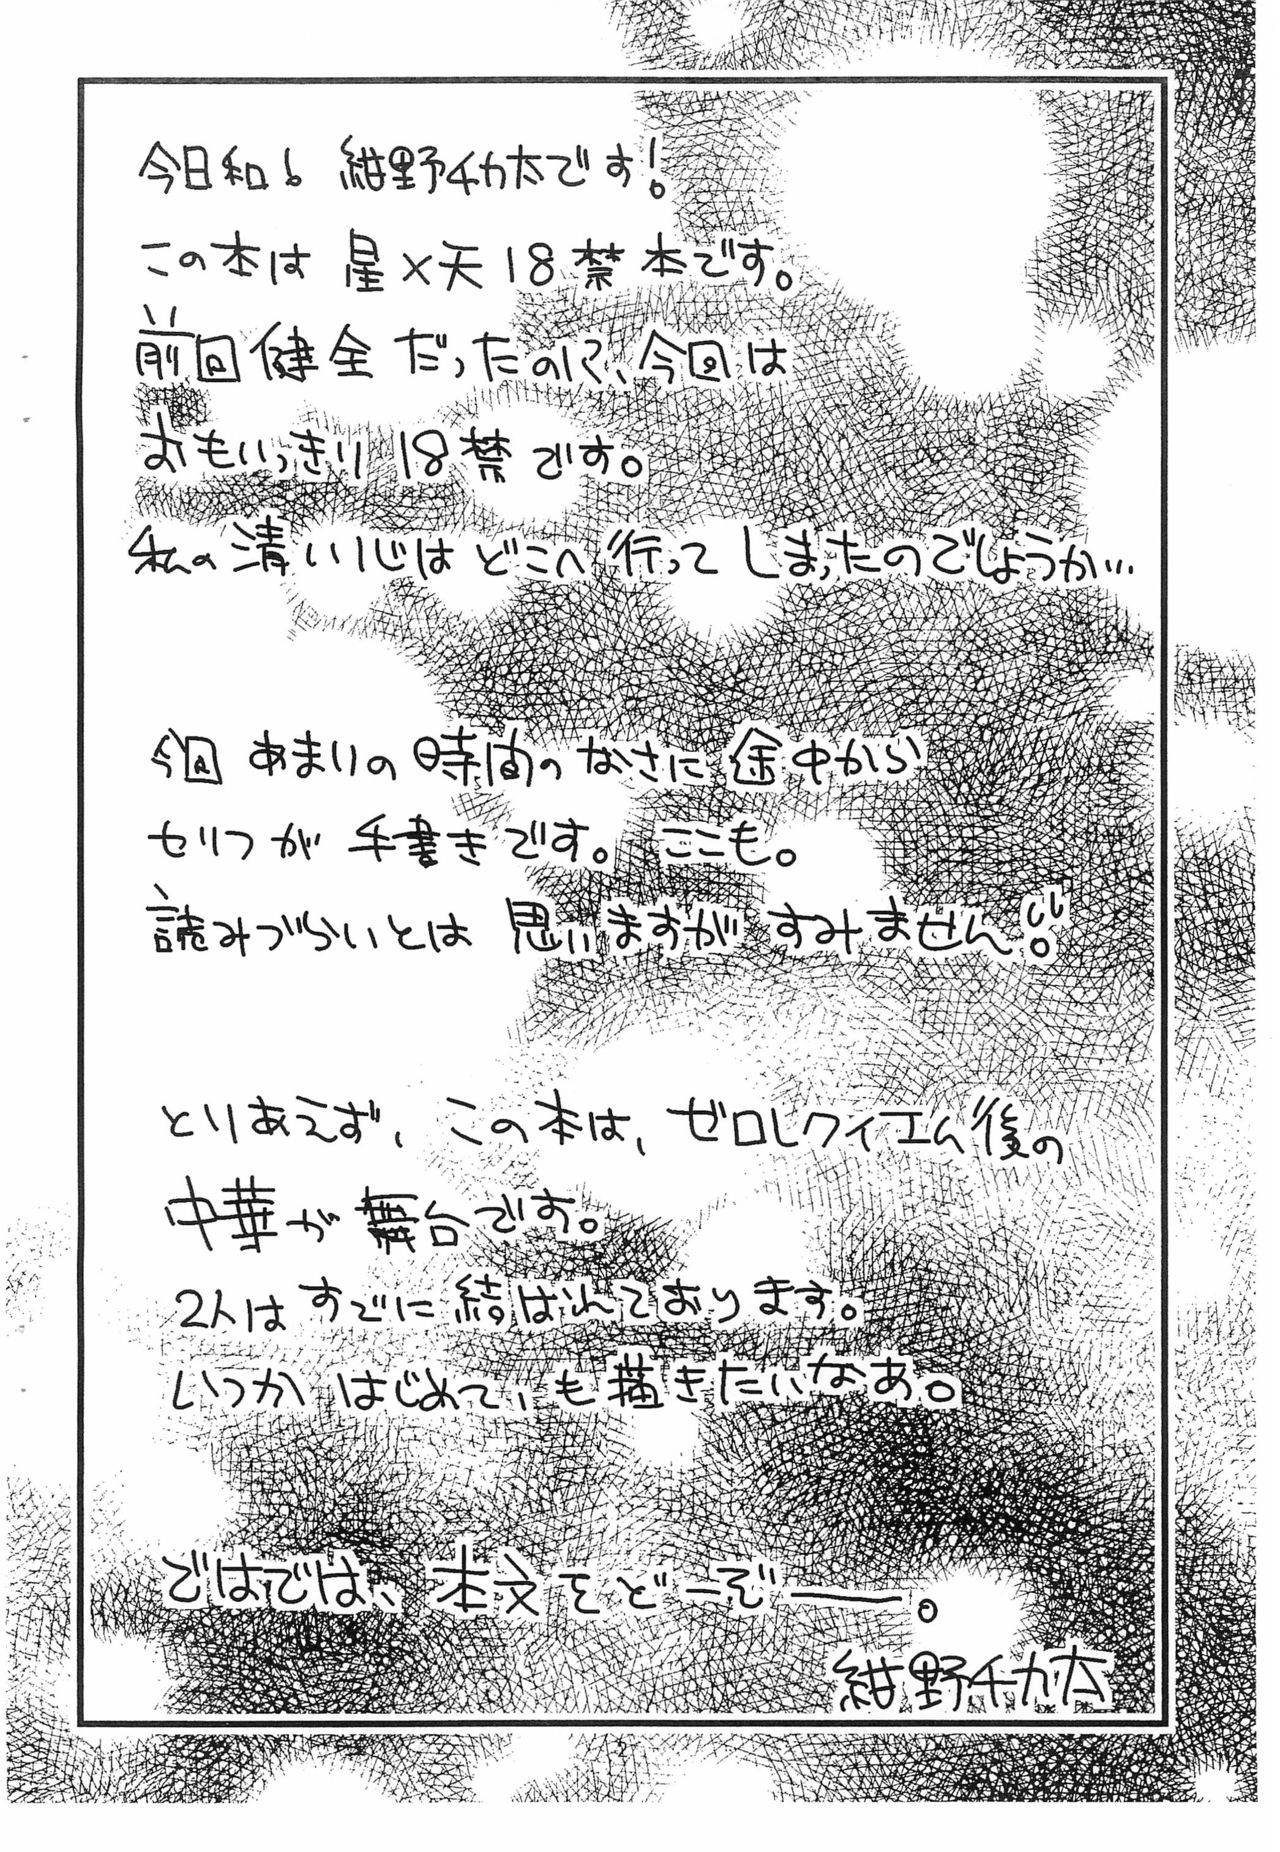 今日和！ 紺野チカ太です！
この本は 星×天18禁本です。
前回健全だったのに、今回は
おもいっきり18禁です。
私の清い心はどこへ行ってしまったのでしょうか…
今回あまりの時間のなさに途中から
セリフが手書きです。ここも。
読みづらいとは思いますがすみません！！
とりあえず、この本は、ゼロレクイエム後の
中華が舞台です。
2人はすでに結ばれております。
いつか はじめて、も描きたいなあ。
ではでは、本文をどーぞー。
紺野チカ太